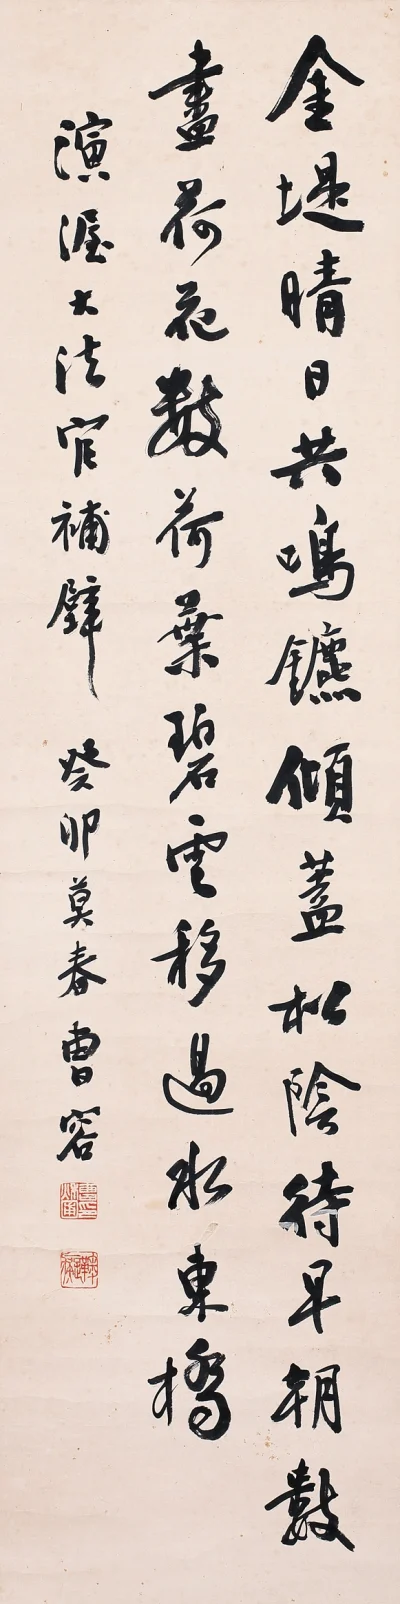 金堤晴日共鳴鑣傾蓋松陰待早朝數
盡荷花數荷葉碧雲移過水東橋
演渥大法官補壁　癸卯莫春曹容